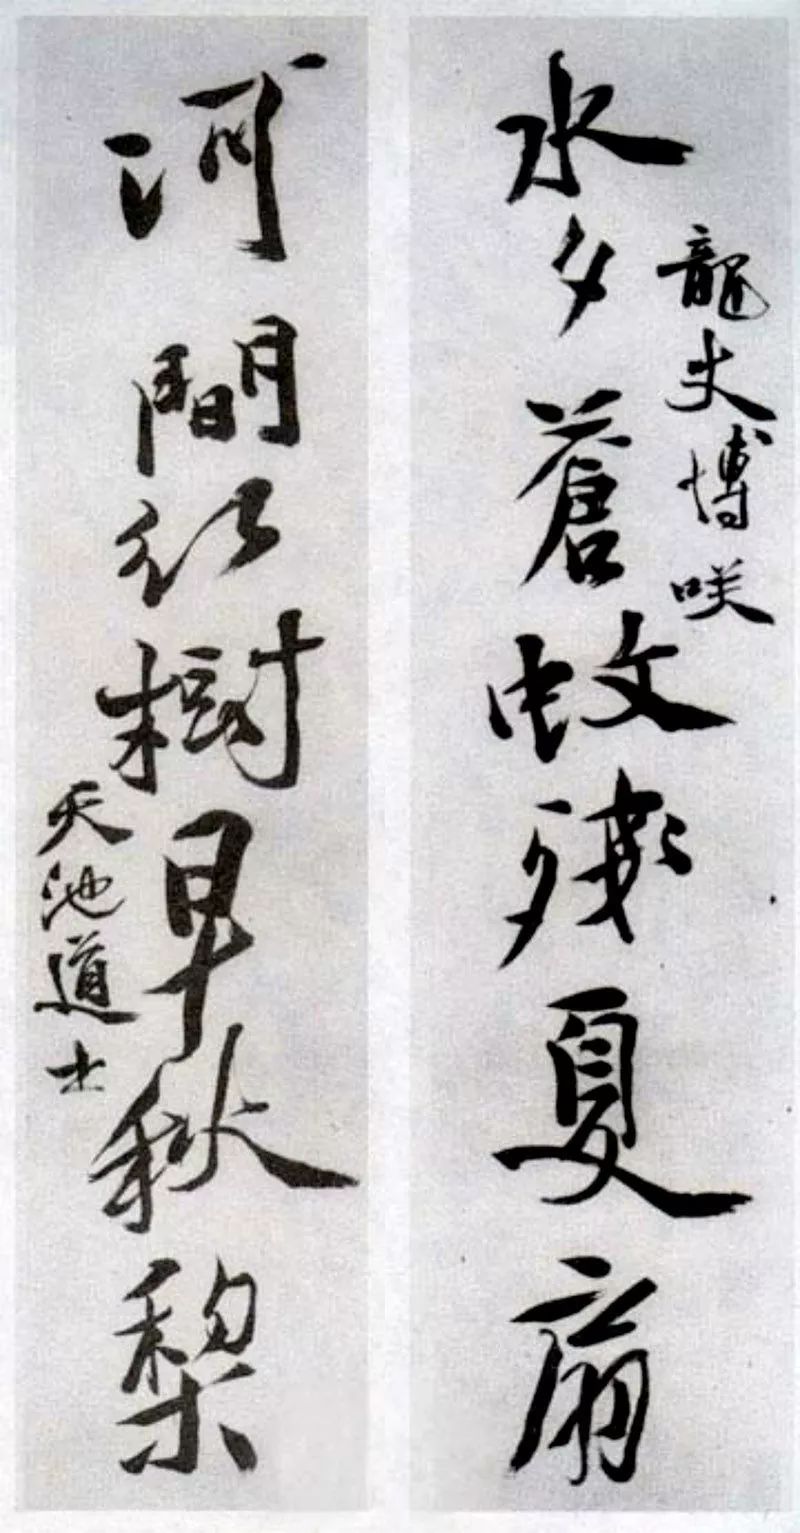 龍丈博咲
水夕蒼蚊殘夏扇
河間紅樹早秋梨
天池道士